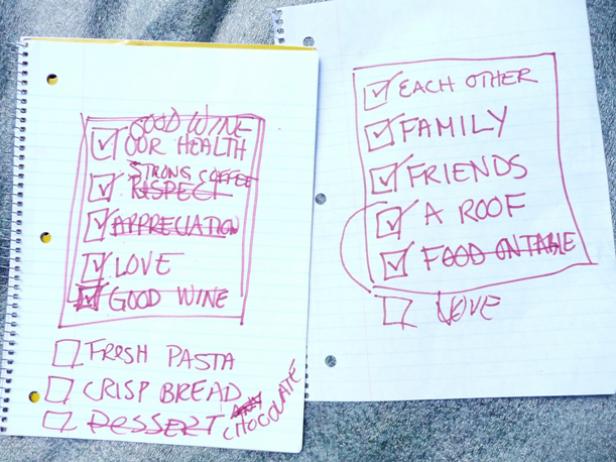 GOOD WINE
OUR HEALTH
STRONG COFFEE
RESPECT
APPRECIATION
LOVE
GOOD WINE
FRESH PASTA
CRISP BREAD
DESSERT
CHOCOLATE
EACH OTHER
FAMILY
FRIENDS
A ROOF
FOOD ON TABLE
LOVE